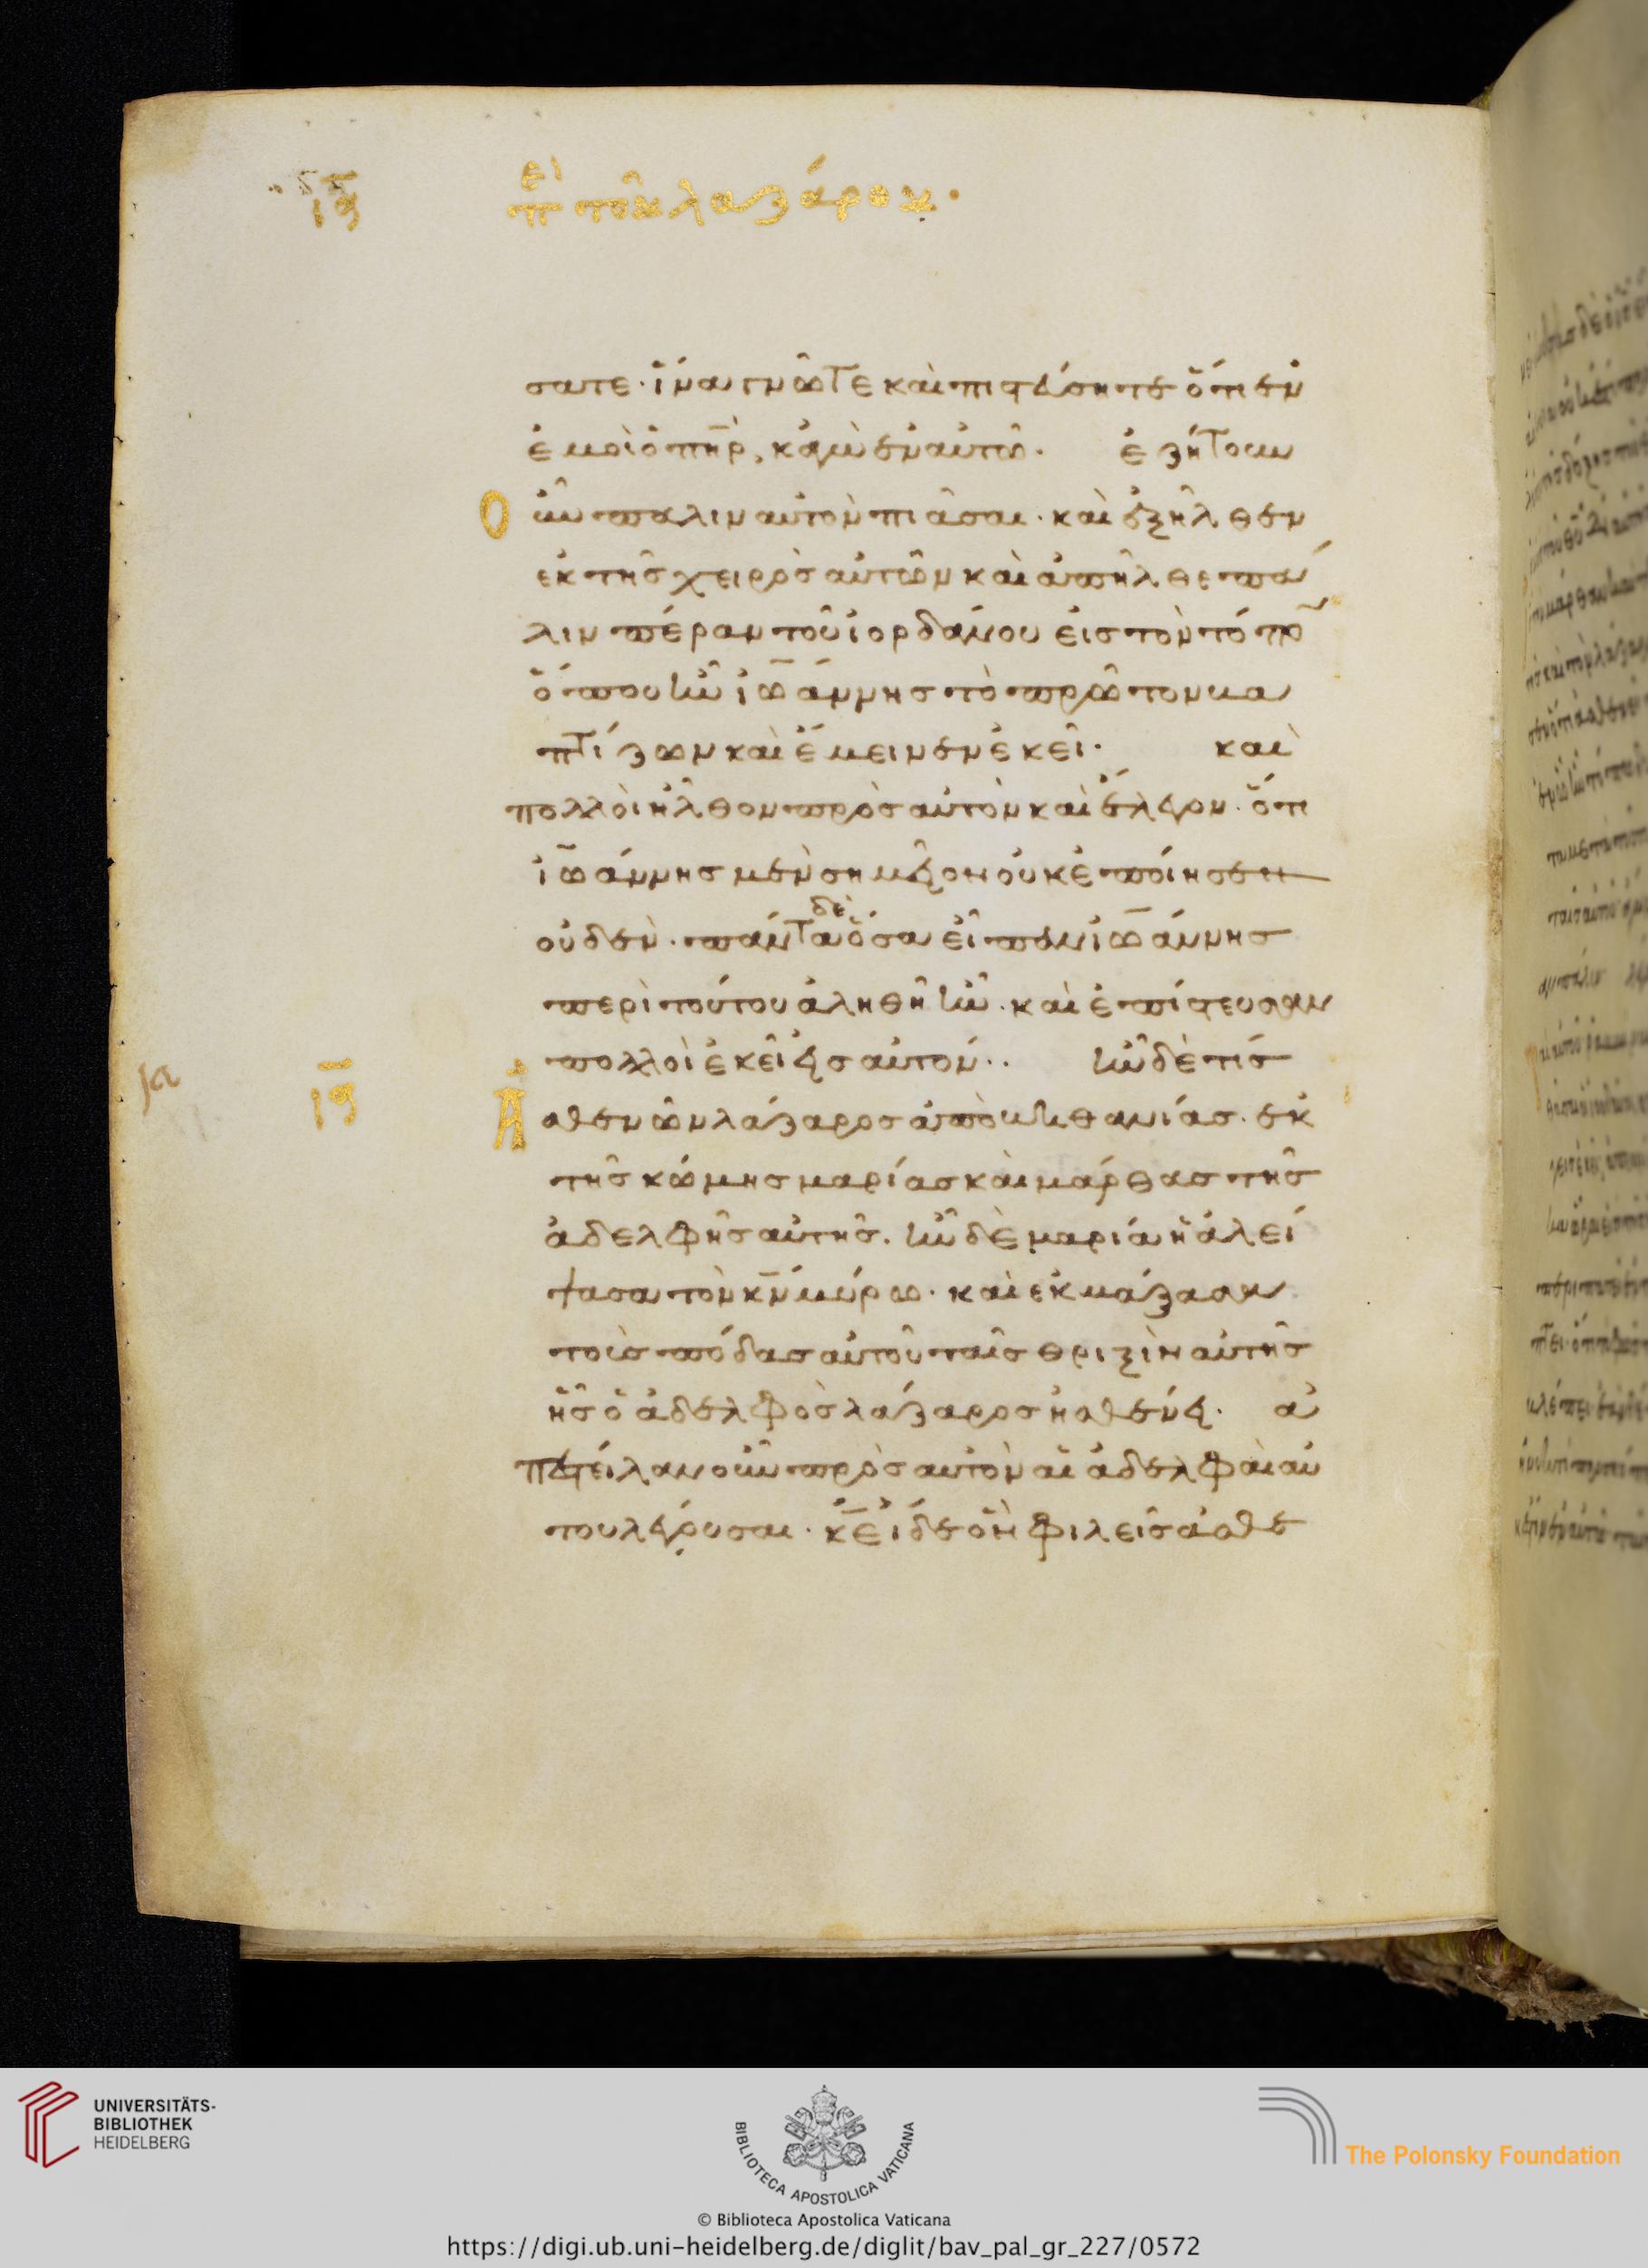 ιϛ περὶ τοῦ λαζάρου.
σατε. ἵνα γνῶτε καὶ πιστεύσητε ὅτι ἐν
ἐμοὶ ὁ πηρ, κἀγὼ ἐν αὐτῶ. ἐζήτουν
οὖν πάλιν αὐτὸν πιᾶσαι. καὶ ἐξῆλθεν
ἐκ τῆς χειρὸς αὐτῶν καὶ ἀπῆλθε πά
λιν πέραν τοῦ ἰορδάνου εἰς τὸν τόπο
ὅπου ἦν ἰωάννης τὸ πρῶτον βα
πτίζων καὶ ἔμεινεν ἐκεῖ. καὶ
πολλοὶ ἦλθον πρὸς αὐτὸν καὶ ἔλεγον. ὅτι
ἰωάννης μὲν σημεῖον οὐκ ἐποίησεν
οὐδέν. πάντα δὲ ὅσα εἶπεν ἰωάννης
περὶ τούτου ἀληθῆ ἦν. καὶ ἐπίστευσαν
πολλοὶ ἐκεῖ εἰς αὐτόν.. ἦν δὲ τίς
ια ιϛ ἀσθενῶν λάζαρος ἀπὸ βηθανίας. ἐκ
τῆς κώμης μαρίας καὶ μάρθας τῆς
ἀδελφῆς αὐτῆς. ἦν δὲ μαρία ἡ ἀλεί
ψασα τὸν κν μύρω. καὶ ἐκμάξασα
τοὺς πόδας αὐτοῦ ταῖς θριξὶν αὐτῆς
ἧς ὁ ἀδελφὸς λάζαρος ἠσθένει. ἀ
πέστειλαν οὖν πρὸς αὐτὸν αἱ ἀδελφαὶ αὐ
του λέγουσαι. κε ἴδε ὃν φιλεῖς ἀσθε
UNIVERSITÄTS-
BIBLIOTHEK
HEIDELBERG
BIBLIOTECA APOSTOLICA VATICANA
The Polonsky Foundation
© Biblioteca Apostolica Vaticana
https://digi.ub.uni-heidelberg.de/diglit/bav_pal_gr_227/0572